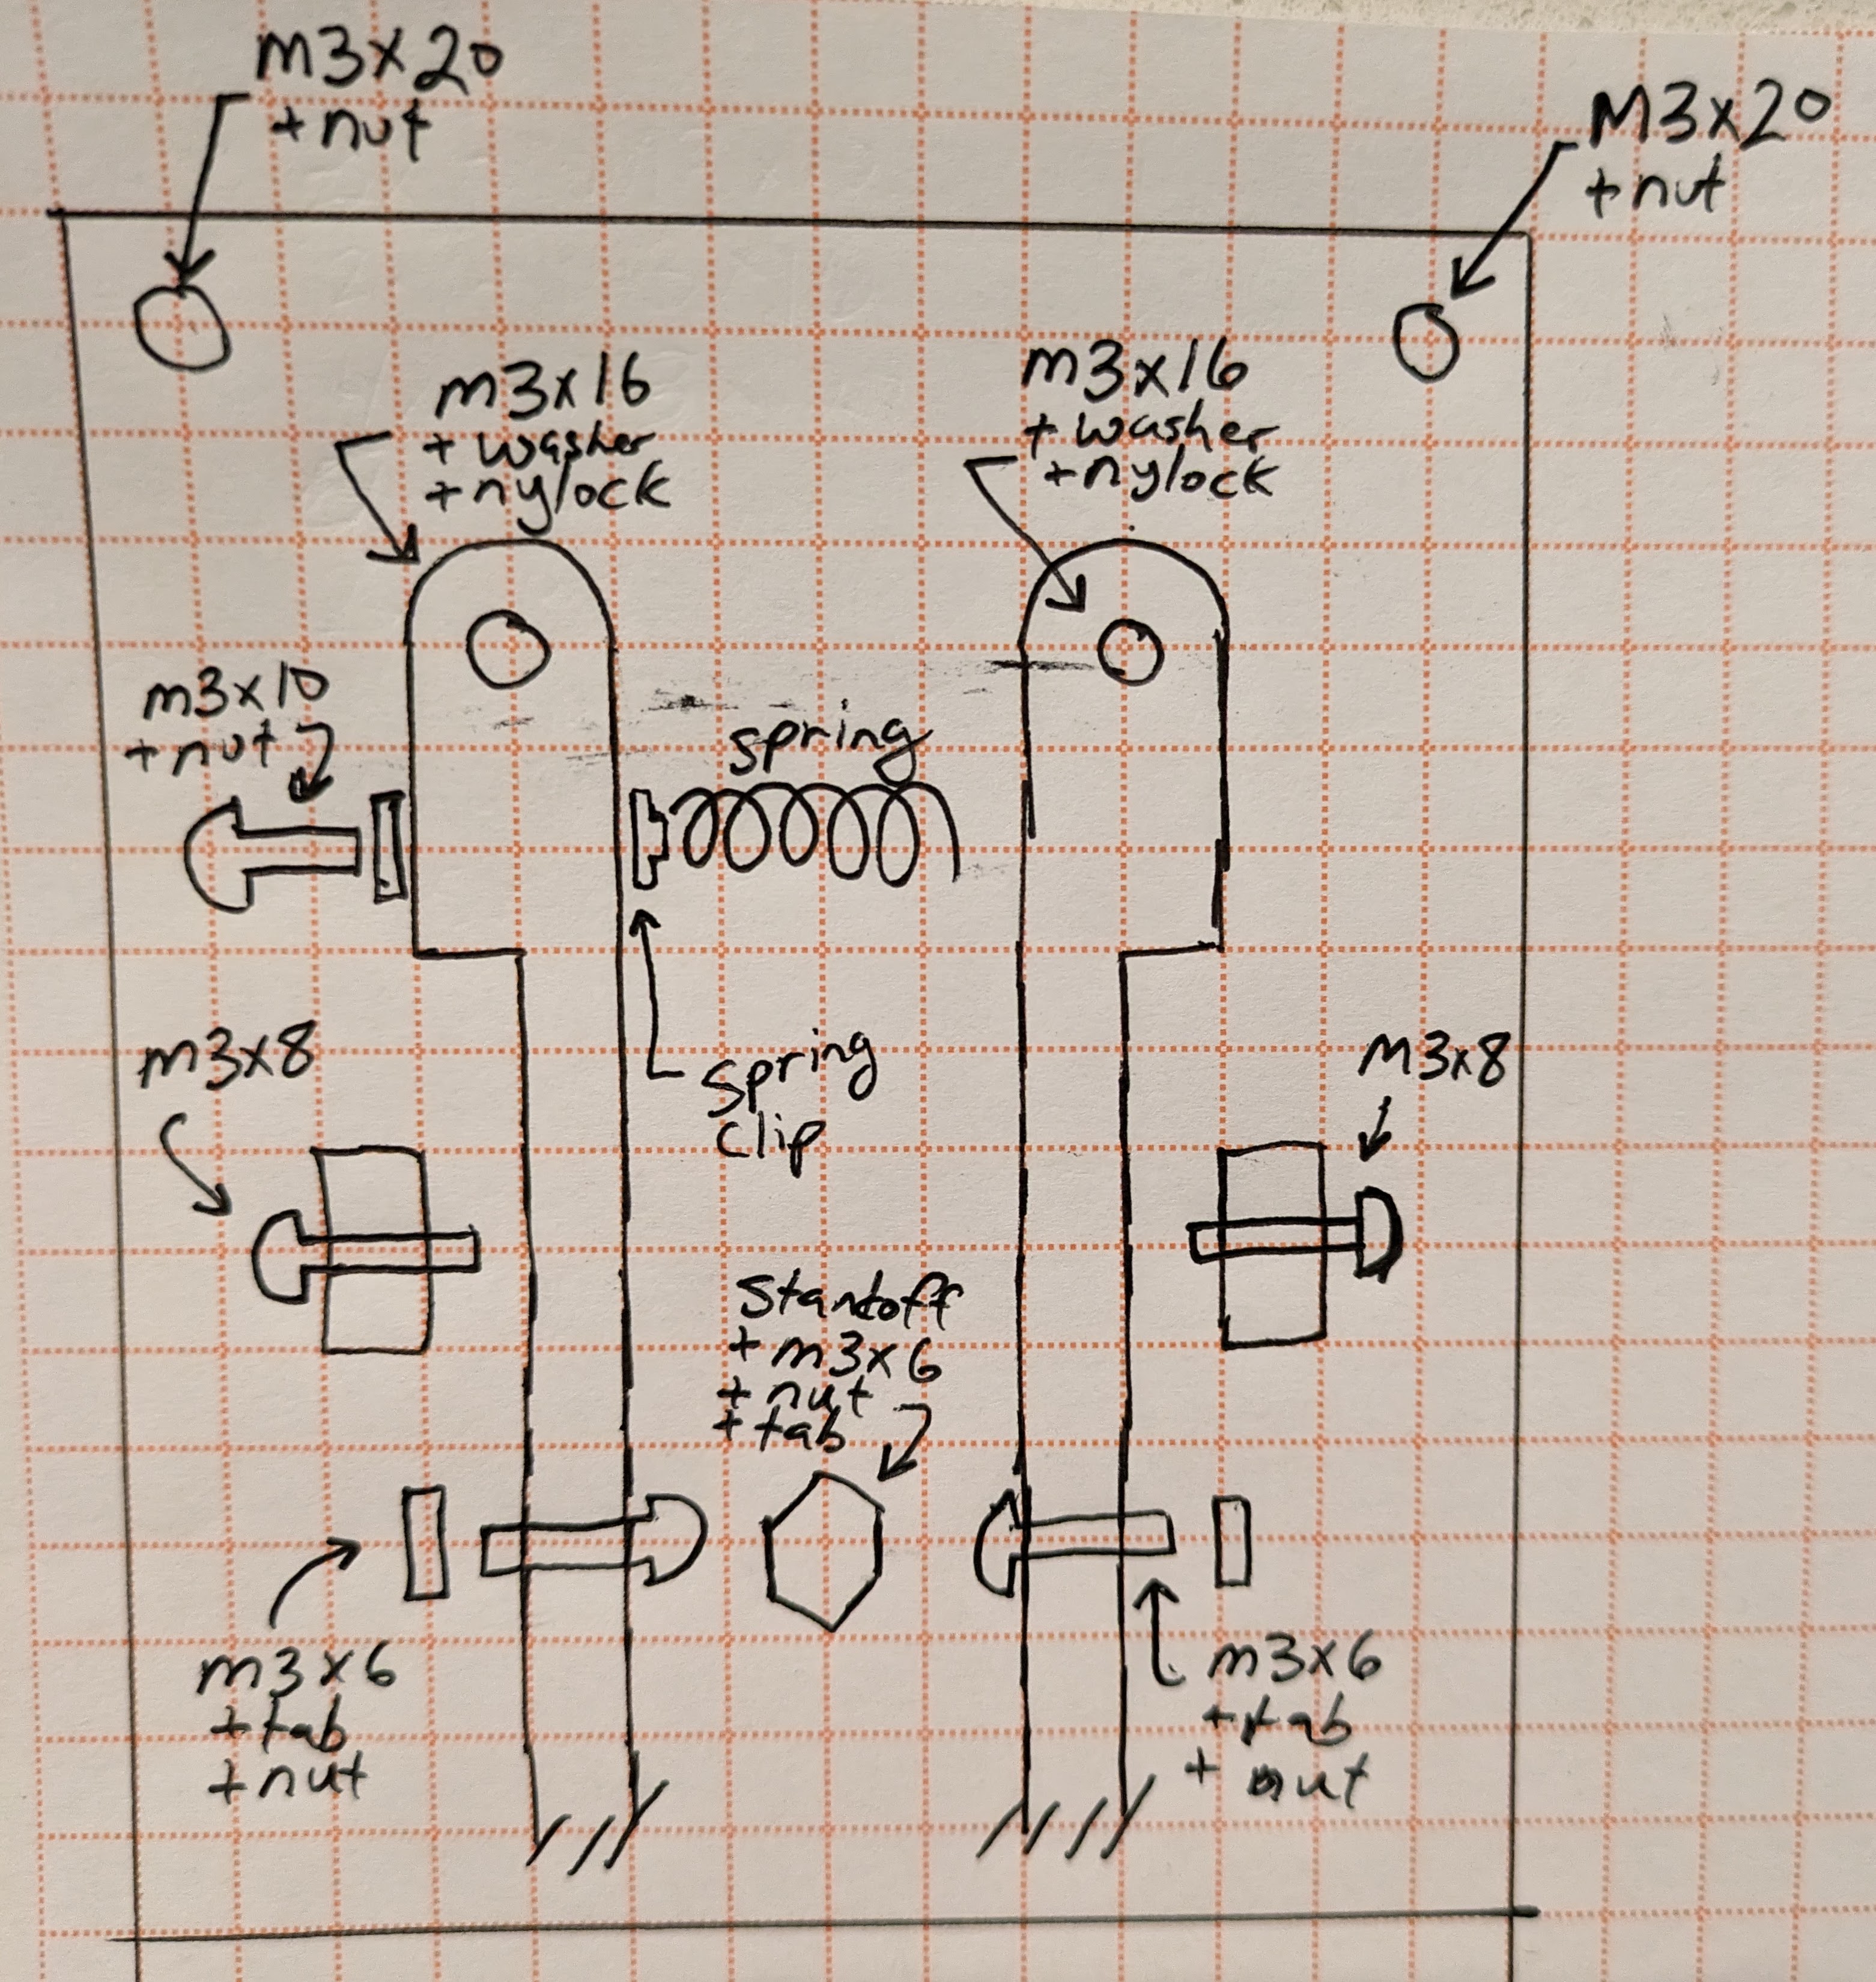 m3x20
+ nut
M3x20
+ nut
m3x16
+ washer
+ nylock
m3x16
+ washer
+ nylock
m3x10
+ nut
spring
spring
clip
m3x8
M3x8
Standoff
+ m3x6
+ nut
+ tab
m3x6
+ tab
+ nut
m3x6
+ tab
+ nut